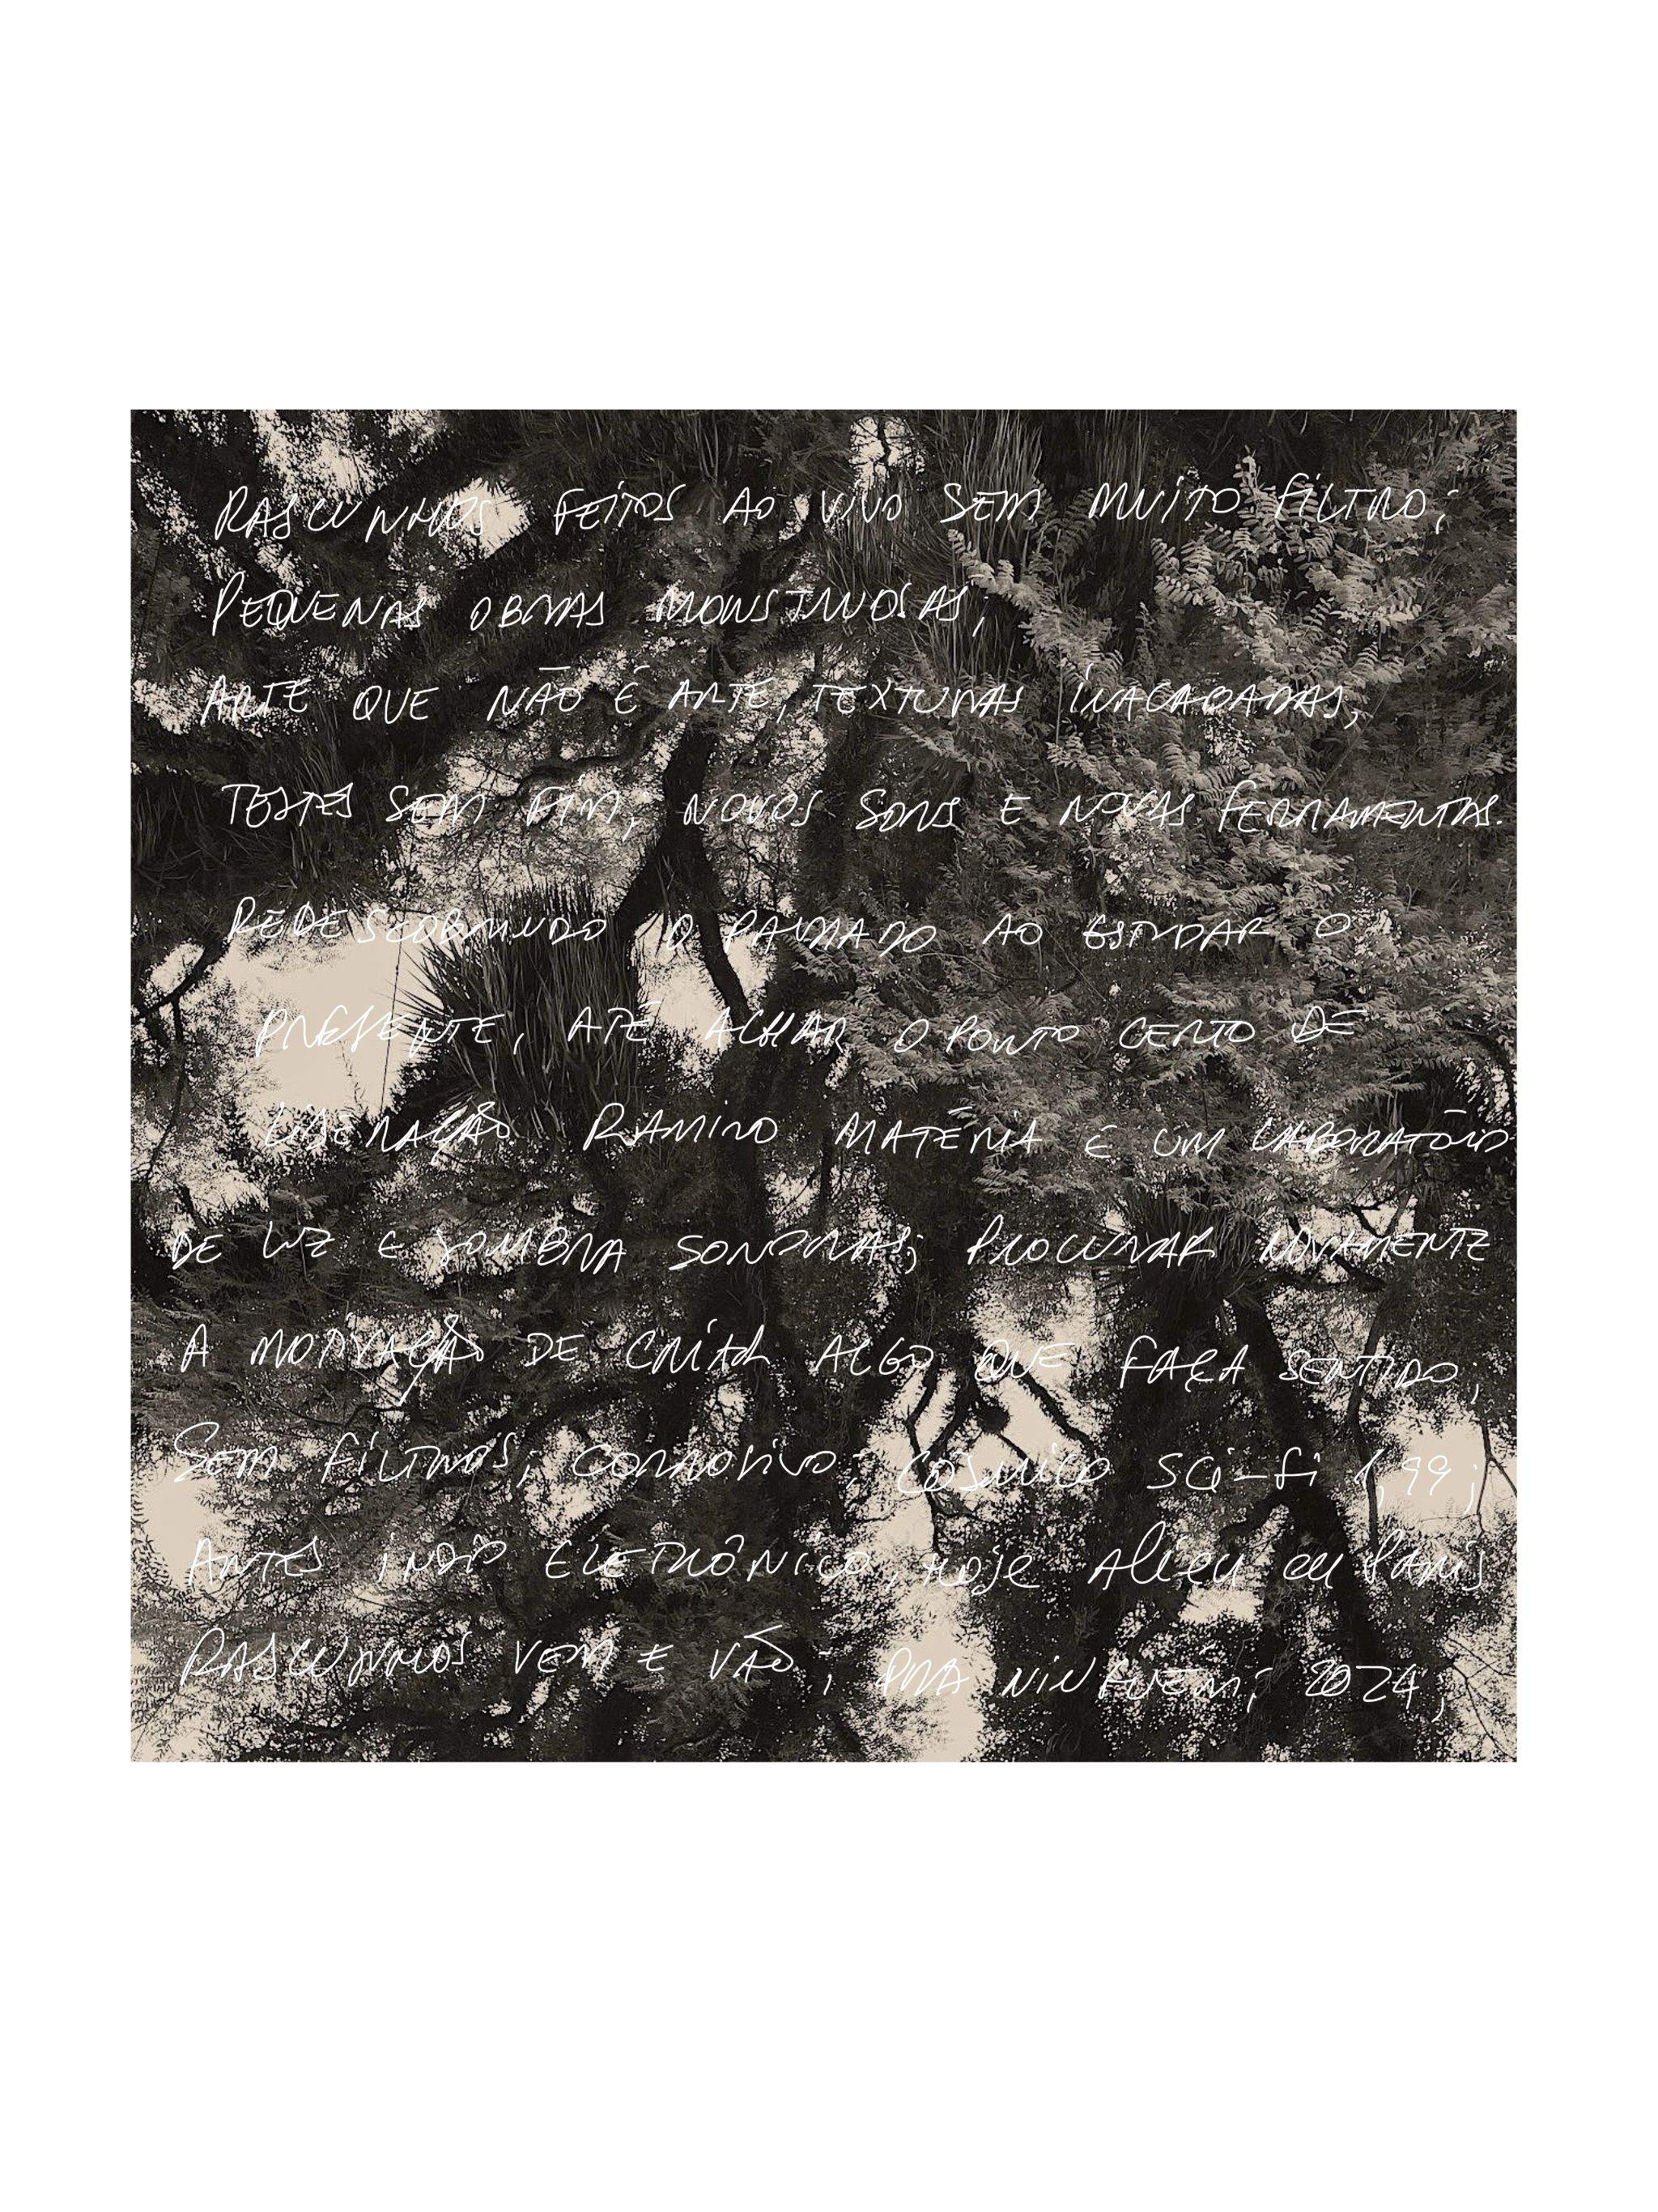 RASCUNHOS FEITOS AO VIVO SEM MUITO FILTRO;
PEQUENAS OBRAS MONSTRUOSAS;
ARTE QUE NÃO É ARTE, TEXTURAS INACABADAS,
TESTES SEM FIM, NOVOS SONS E NOVAS FERRAMENTAS.
REDESCOBRINDO O PASSADO AO ESTUDAR O
PRESENTE, ATÉ ACHAR O PONTO CERTO DE
LIBERAÇÃO RAMIRO MATÉRIA É UM LABORATÓRIO
DE LUZ E SOMBRA SONORAS; PROCURAR NOVAMENTE
A MOTIVAÇÃO DE CRIAR ALGO QUE FAÇA SENTIDO;
SEM FILTROS; CORROSIVO. CÓSMICO SCI-FI
ANTES ELETRÔNICO, HOJE ALIEN EM PARIS
RASCUNHOS VEM E VÃO; PRA NINGUÉM; 2024;